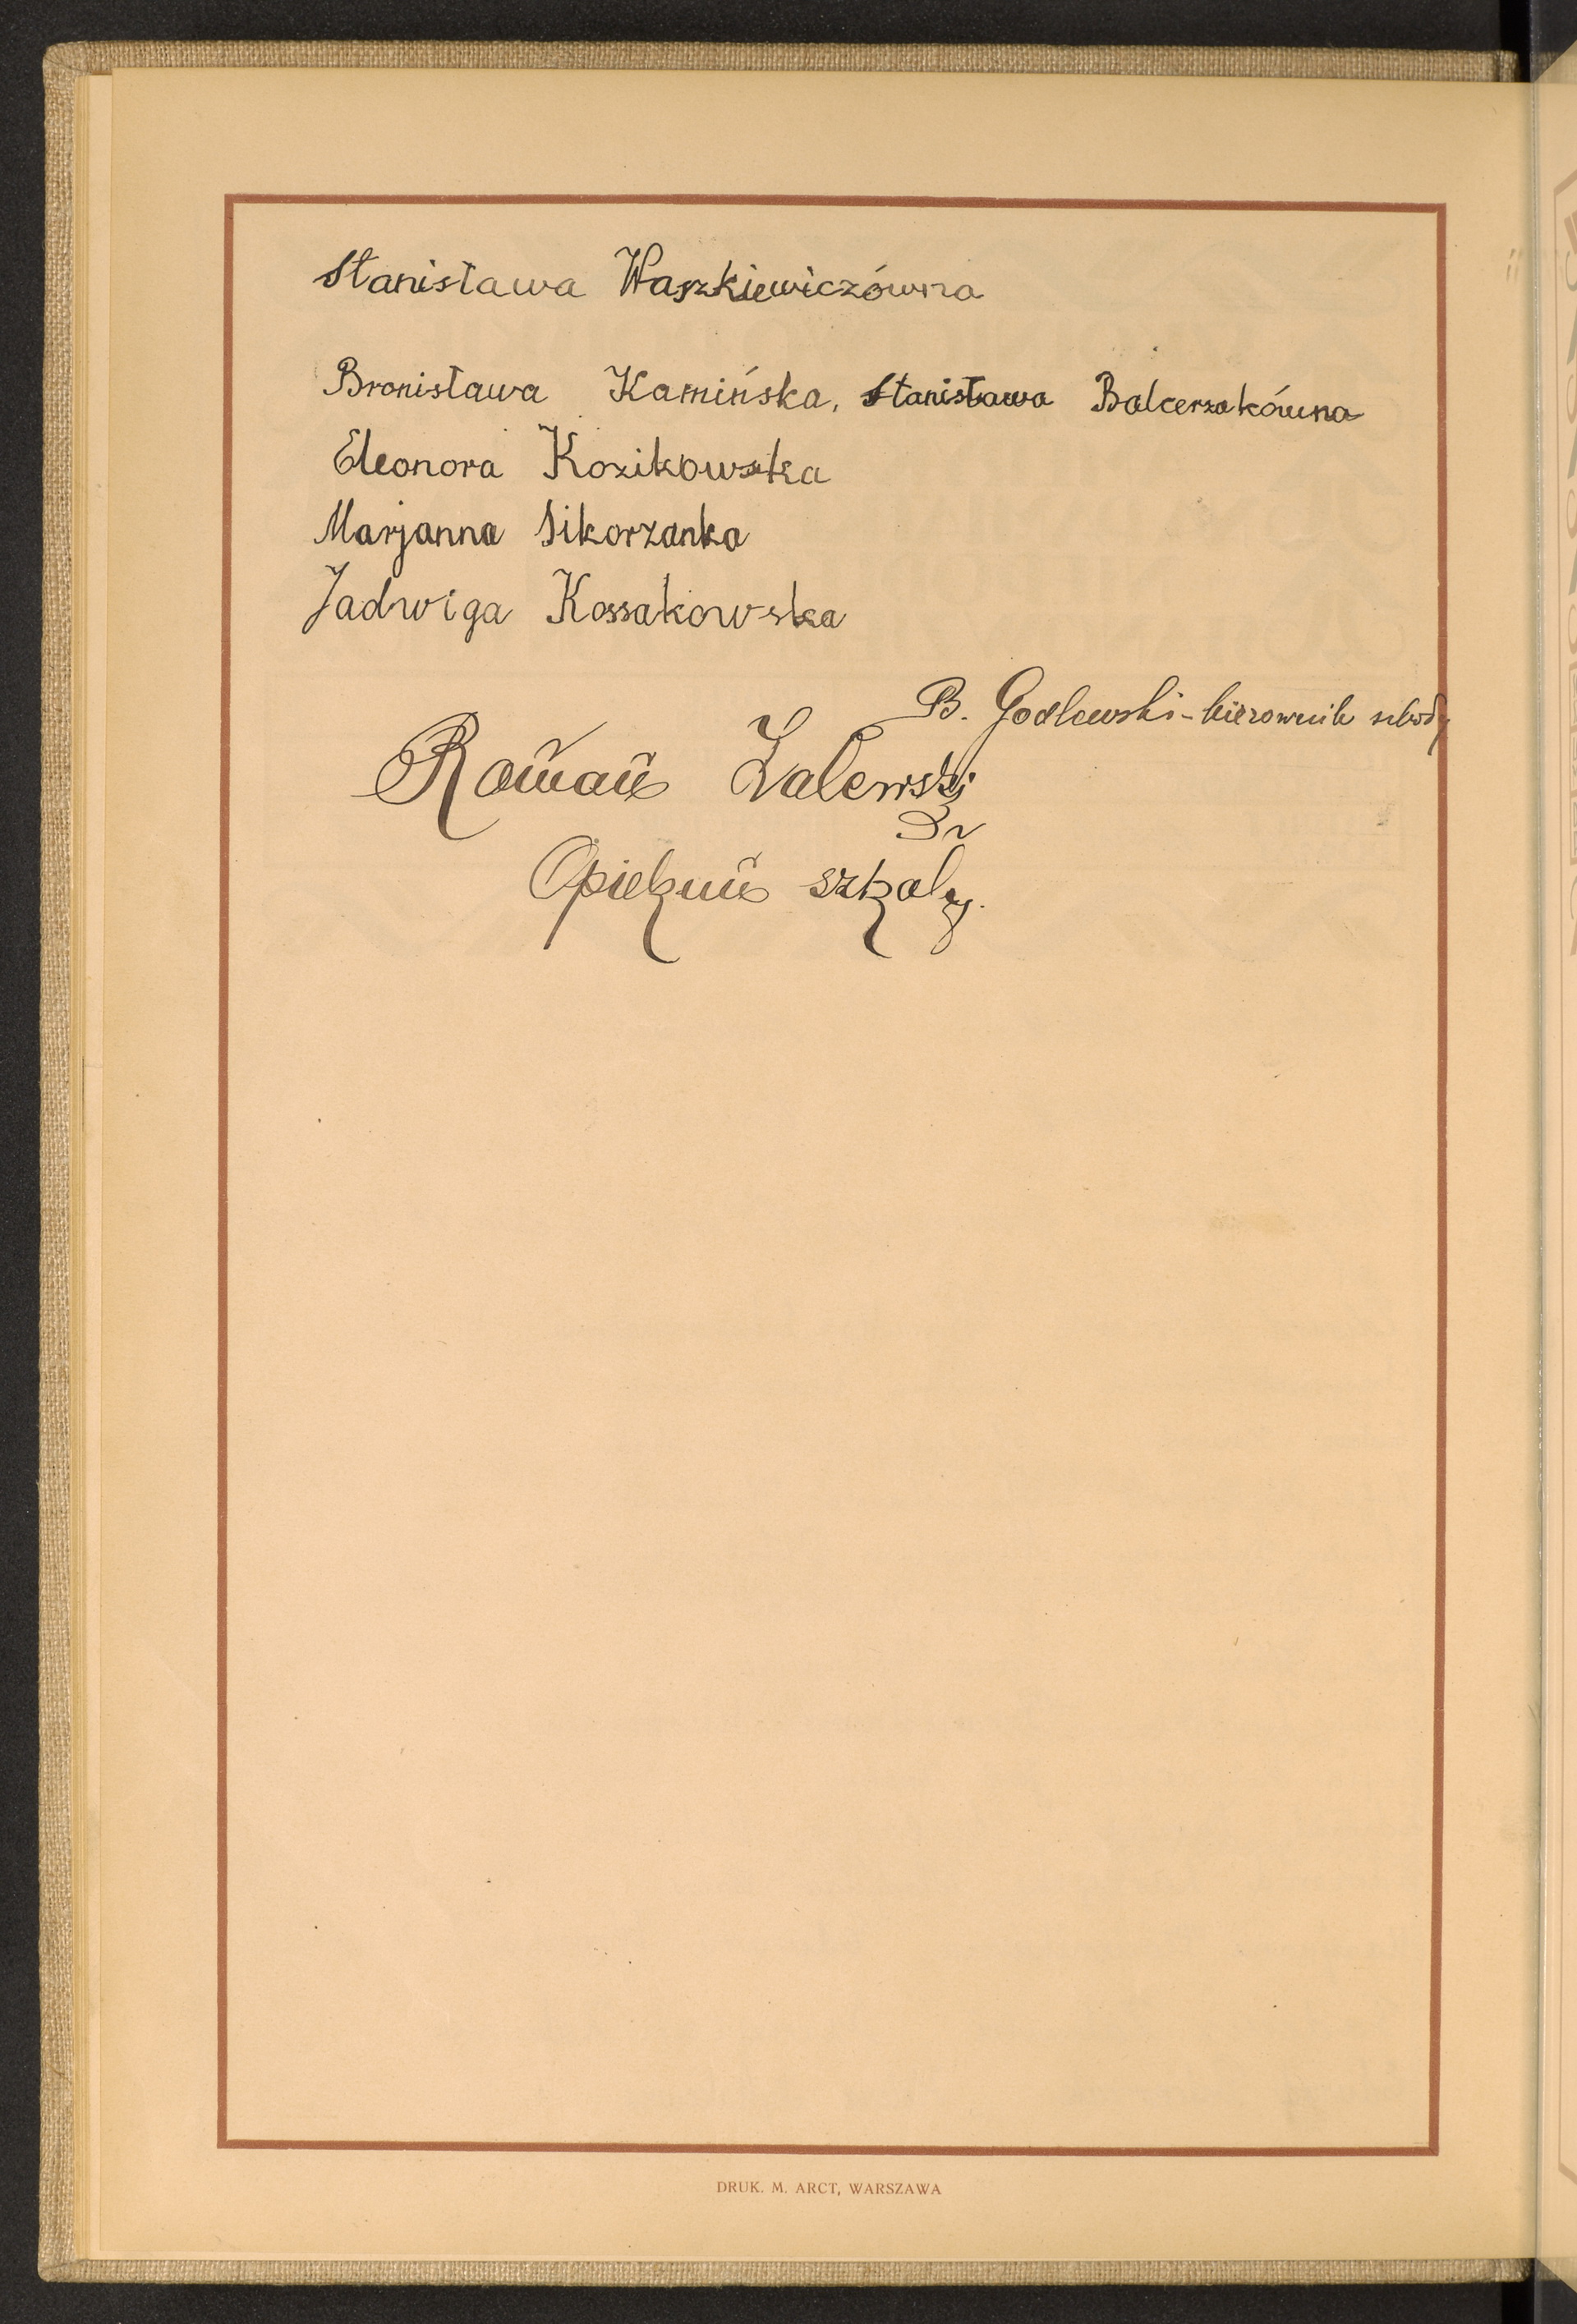 Stanisława Waszkiewiczówna
Bronisława Kamińska, Stanisława Balcerzakówna
Eleonora Kozikowska
Marjanna Sikorzanka
Jadwiga Kossakowska
B. Godlewski - kierownik szkoły
Roman Zalewski
Opiekun szkoły.
DRUK. M. ARCT, WARSZAWA